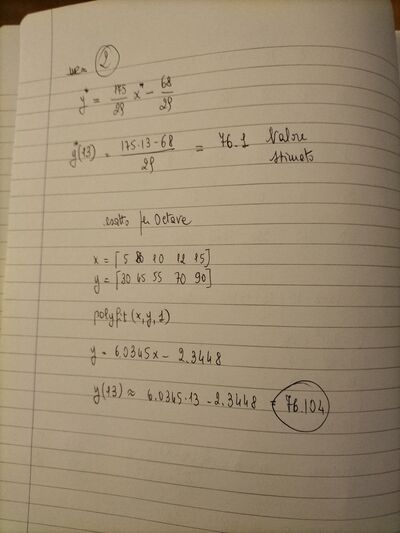 2
y* = 175/29 x* - 68/29
y*(13) = 175·13-68/29 = 76.1 Valore stimato
per Octave
x = [5 8 10 12 15]
y = [30 45 55 70 90]
polyfit (x,y,1)
y = 6.0345x - 2.3448
y(13) ≈ 6.0345·13 - 2.3448 = 76.104